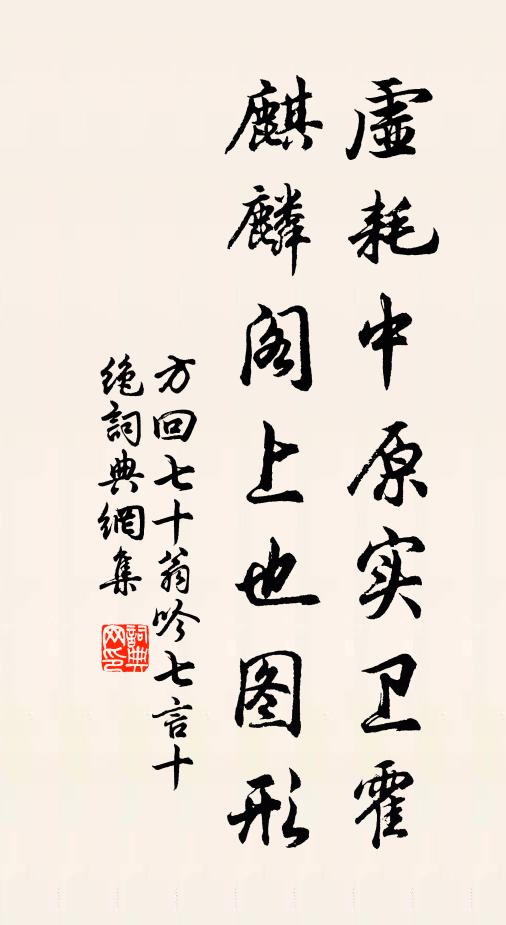 虚耗中原实卫霍
麒麟阁上也图形
方回七十翁吟七言十
绝詞典網集
詞典网印